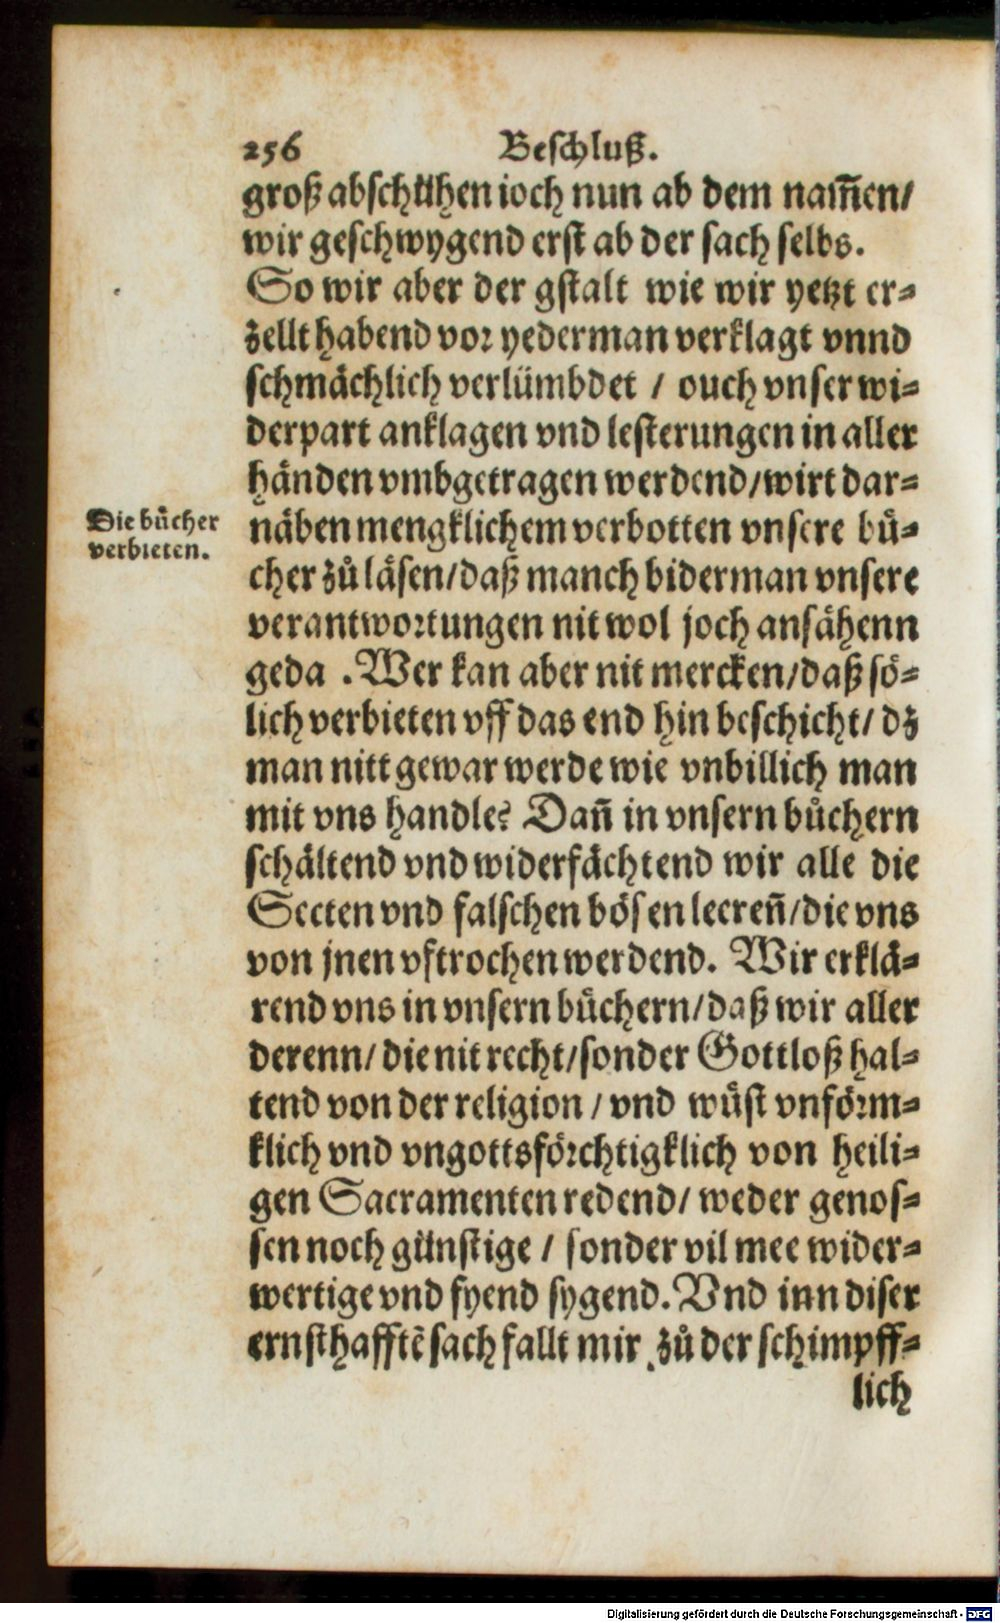 256 Beschluß.
groß abschühen ioch nun ab dem nam̃en/
wir geschwygend erst ab der sach selbs.
So wir aber der gstalt wie wir yetzt er⸗
zellt habend vor yederman verklagt vnnd
schmächlich verlümbdet / ouch vnser wi⸗
derpart anklagen vnd lesterungen in aller
händen vmbgetragen werdend/wirt dar⸗
Die buͤcher
verbieten.
näben mengklichem verbotten vnsere buͤ⸗
cher zů läsen/daß manch biderman vnsere
verantwortungen nit wol joch ansähenn
geda . Wer kan aber nit mercken/daß sö⸗
lich verbieten vff das end hin beschicht/ dz
man nitt gewar werde wie vnbillich man
mit vns handle? Dañ in vnsern buͤchern
schältend vnd widerfächtend wir alle die
Secten vnd falschen bösen leereñ/die vns
von jnen vftrochen werdend. Wir erklä⸗
rend vns in vnsern buͤchern/daß wir aller
derenn/ die nit recht/sonder Gottloß hal⸗
tend von der religion / vnd wüst vnförm⸗
klich vnd vngottsförchtigklich von heili⸗
gen Sacramenten redend/ weder genos⸗
sen noch günstige / sonder vil mee wider⸗
wertige vnd fyend sygend. Vnd inn diser
ernsthafftẽ sach fallt mir zů der schimpff⸗
lich
Digitalisierung gefördert durch die Deutsche Forschungsgemeinschaft - DFG